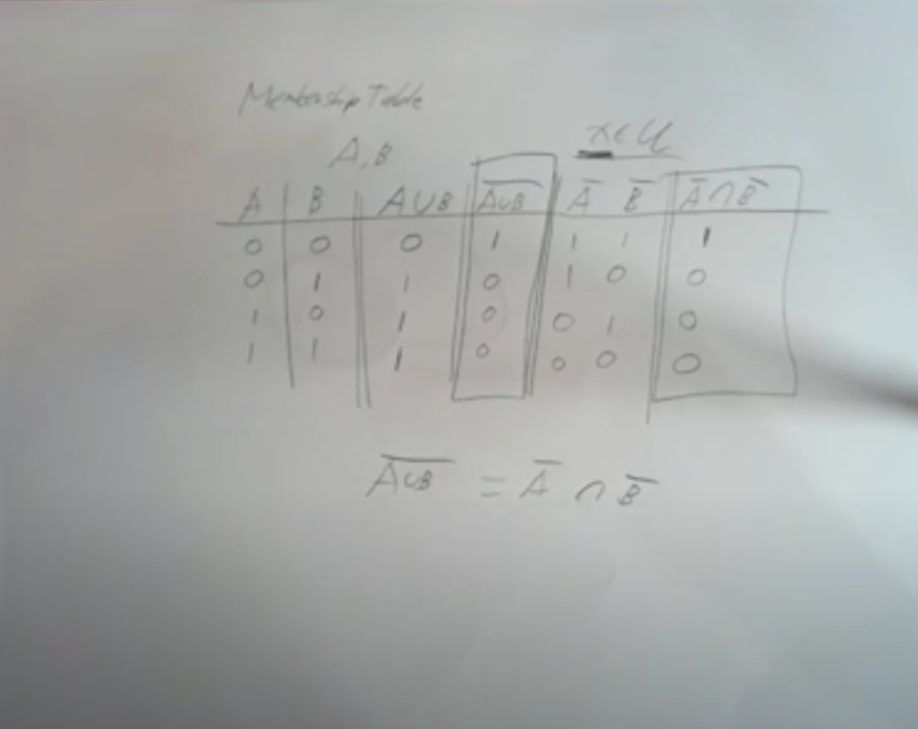 Membership Table
A, B
x ∈ U
A B A∪B \overline{A∪B} \overline{A} \overline{B} \overline{A}∩\overline{B}
0 0 0 1 1 1 1
0 1 1 0 1 0 0
1 0 1 0 0 1 0
1 1 1 0 0 0 0
\overline{A∪B} = \overline{A} ∩ \overline{B}